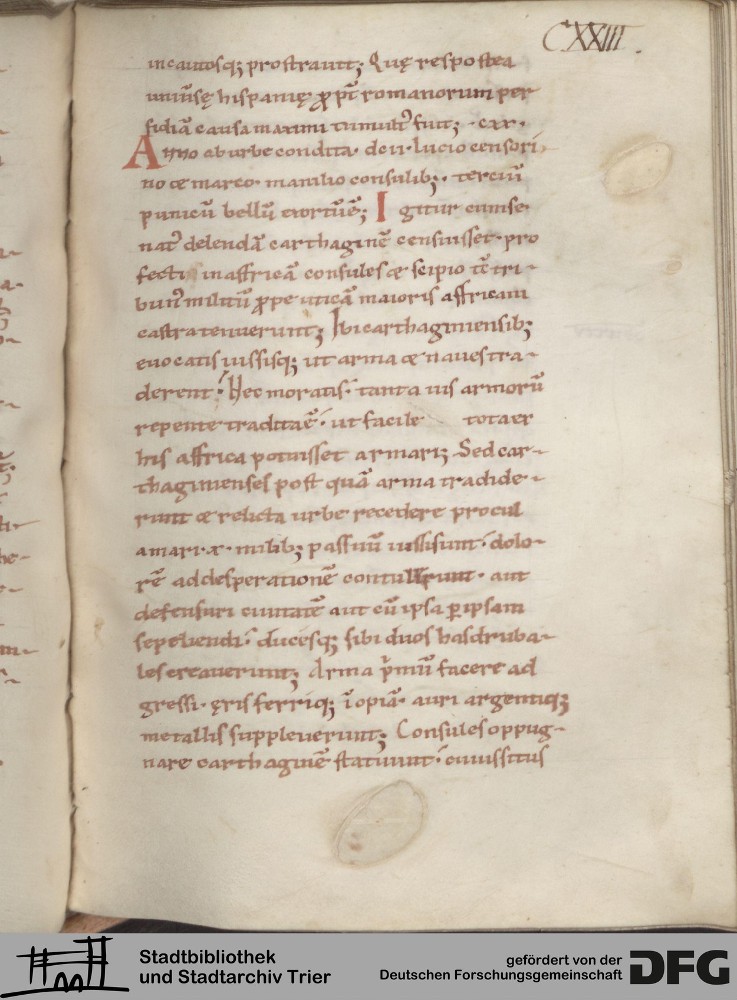 CXXIII.
incautosq; prostravit; Quę res postea
univ̄sę hispanię ꝓpt̄ romanorum per
fidiā causa maximi tumult᾽ fuit; · cxx ·
Anno ab urbe condita · dcii · lucio censori
no & marco · manilio consulib; · terciū
punicū bellū exortū ē; Igitur cum se
nat᾽ delendā carthaginē censuisset · pro
fecti in affricā consules & scipio tc̄ tri-
bun᾽ militū ꝓpe uticā maioris affricam
castra tenuerunt; Ibi carthaginensib;
evocatis iussisq; ut arma & naves tra-
derent · Hec moratis · tanta vis armorū
repente tradita ē · ut facile tota ex
his affrica potuisset armari; Sed car-
thaginenses post quā arma tradide-
runt & relicta urbe recedere procul
a mari · x · milib; passuū iussi sunt · dolo-
rē ad desperationē contulerunt · aut
defensuri civitatē aut cū ipsa ꝑ ipsam
sepeliendi · ducesq; sibi duos hasdruba-
les creaverunt; Arma p̄miū facere ad
gressi · ęris ferriq; īopiā · auri argentiq;
metallis suppleverunt; Consules oppug-
nare carthaginē statuunt · cuius situs
Stadtbibliothek
und Stadtarchiv Trier
gefördert von der
Deutschen Forschungsgemeinschaft
DFG